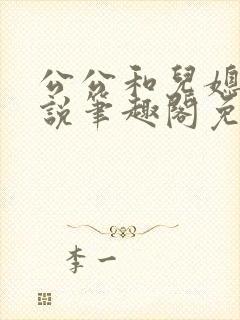 公公和兒媳
說筆趣閣免
李一